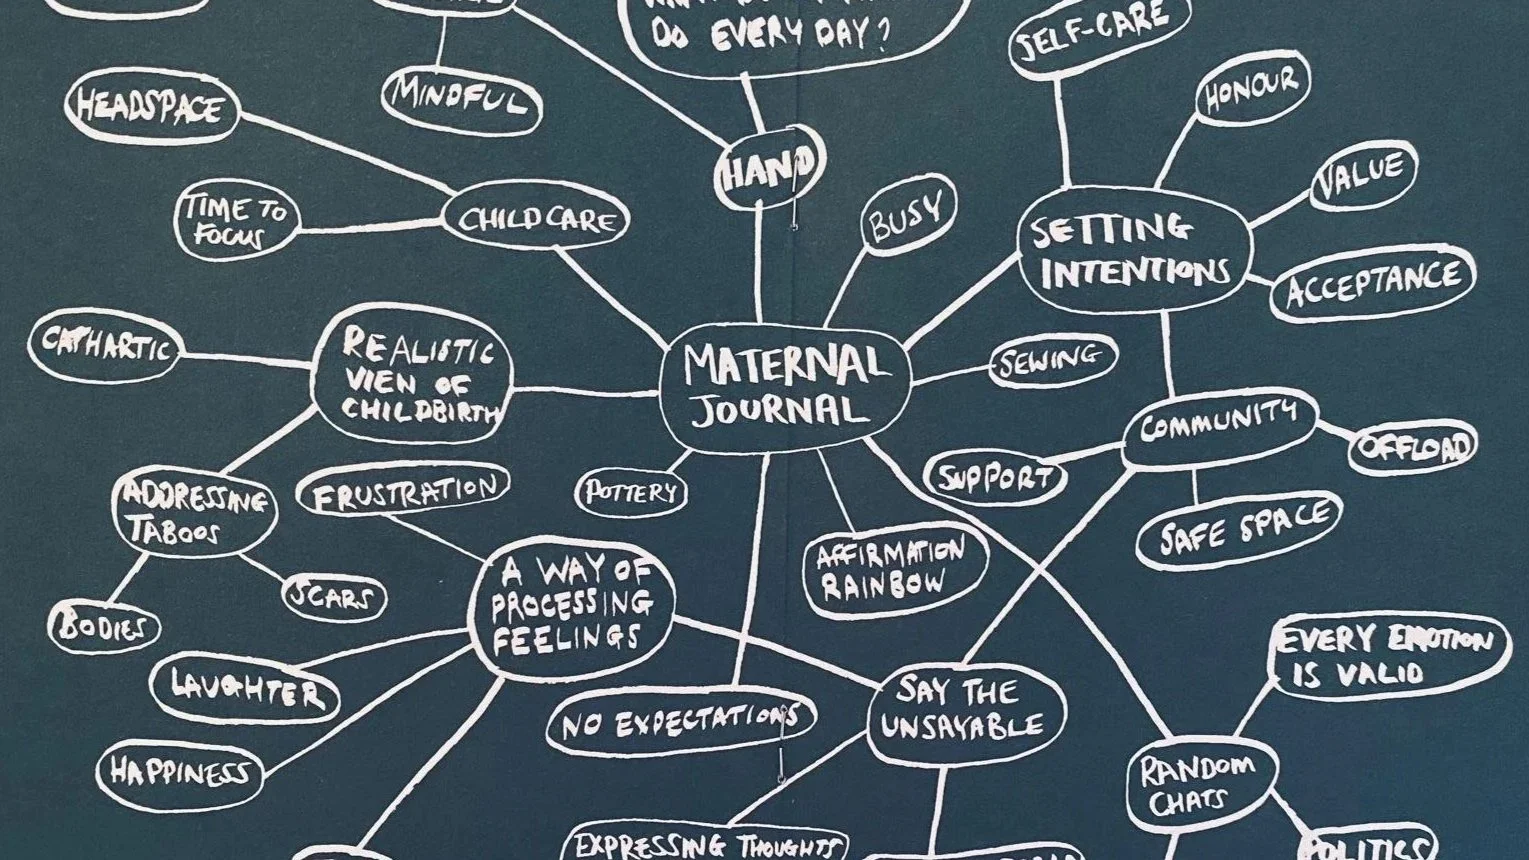 DO EVERY DAY?
SELF-CARE
MINDFUL
HEADSPACE
HONOUR
HAND
VALUE
TIME TO
FOCUS
CHILDCARE
BUSY
SETTING
INTENTIONS
ACCEPTANCE
CATHARTIC
REALISTIC
VIEN OF
CHILDBIRTH
MATERNAL
JOURNAL
SEWING
COMMUNITY
OFFLOAD
SUPPORT
SAFE SPACE
ADDRESSING
TABOOS
FRUSTRATION
POTTERY
AFFIRMATION
RAINBOW
A WAY OF
PROCESSING
FEELINGS
SCARS
BODIES
LAUGHTER
HAPPINESS
NO EXPECTATIONS
SAY THE
UNSAYABLE
EVERY EMOTION
IS VALID
RANDOM
CHATS
EXPRESSING THOUGHTS
POLITICS